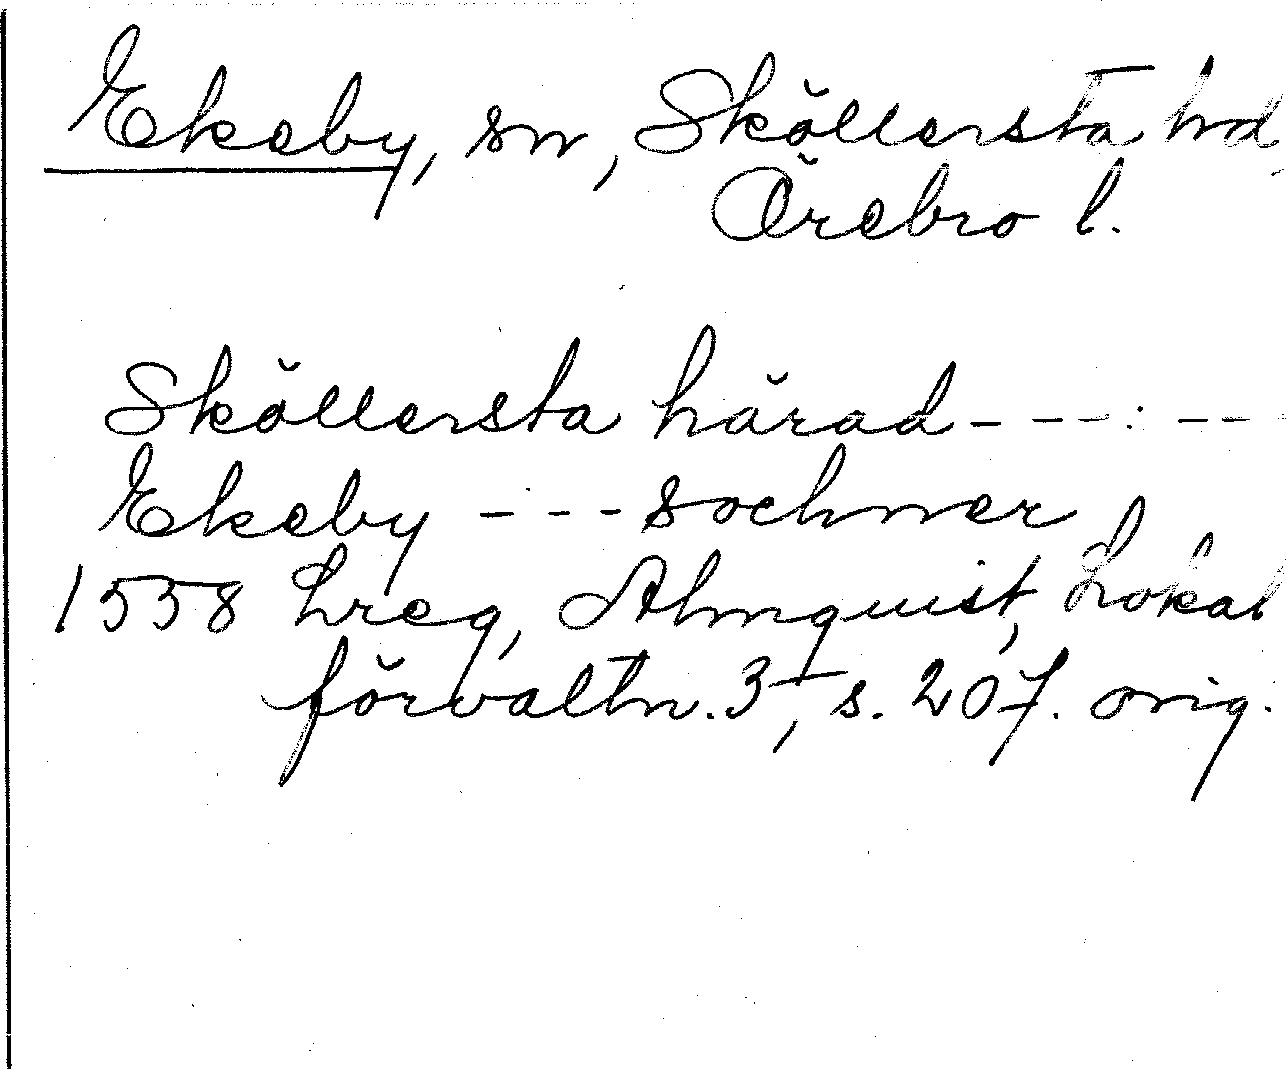 Ekeby, sn, Sköllersta hd,
Örebro l.
Sköllersta härad - - - : - - -
Ekeby - - - sochner
1558 Lreg, Almquist, Lokal
förvaltn. 3, s. 207. orig.